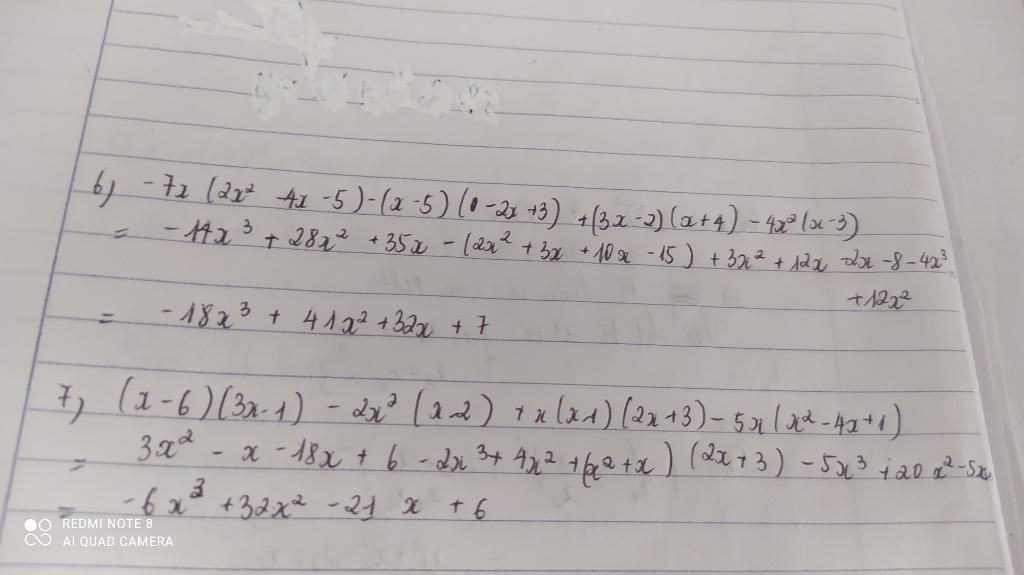 6) -7x (2x² -4x -5) -(x-5) (-2x+3) +(3x-2)(x+4) -4x²(x-3)
= -14x³ + 28x² +35x -(2x² +3x +10x -15) +3x² +12x -2x -8 -4x³
+12x²
= -18x³ + 41x² +32x +7
7) (x-6)(3x-1) - 2x² (x-2) + x(x+1)(2x+3) - 5x(x²-4x+1)
= 3x² - x -18x + 6 -2x³ + 4x² +(x²+x) (2x+3) -5x³ +20x²-5x
= -6x³ +32x² -21x +6
REDMI NOTE 8
AI QUAD CAMERA